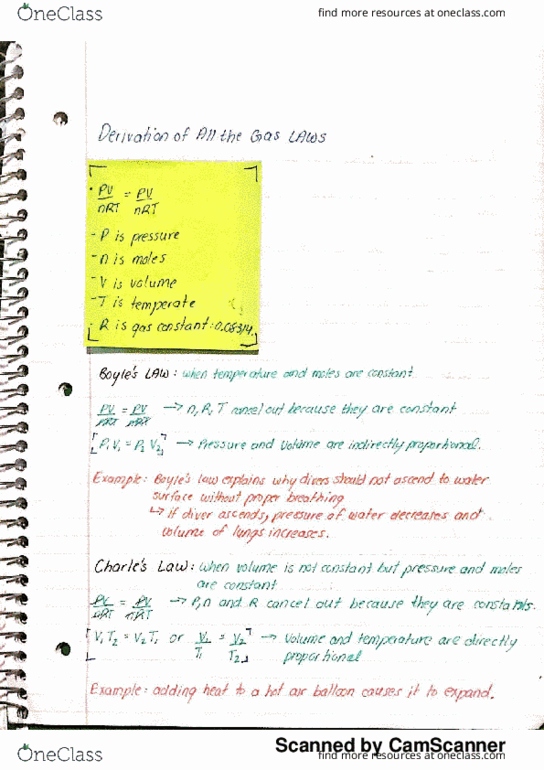 OneClass
find more resources at oneclass.com
Derivation of All the Gas Laws
• PV/nRT = PV/nRT
- P is pressure
- n is moles
- V is volume
- T is temperate
- R is gas constant:
Boyle's LAW: when temperature and moles are constant
PV/nRT = PV/nRT → n, R, T cancel out because they are constant
[P₁V₁ = P₂V₂] → Pressure and Volume are indirectly proportional.
Example: Boyle's law explains why divers should not ascend to water
surface without proper breathing
↳ if diver ascends, pressure of water decreases and
volume of lungs increases.
Charle's Law: when volume is not constant but pressure and moles
are constant
PV/nRT = PV/nRT → P, n and R cancel out because they are constants.
[V₁T₂ = V₂T₁ or V₁/T₁ = V₂/T₂] → Volume and temperature are directly
proportional
Example: adding heat to a hot air balloon causes it to expand.
Scanned by CamScanner
OneClass
find more resources at oneclass.com